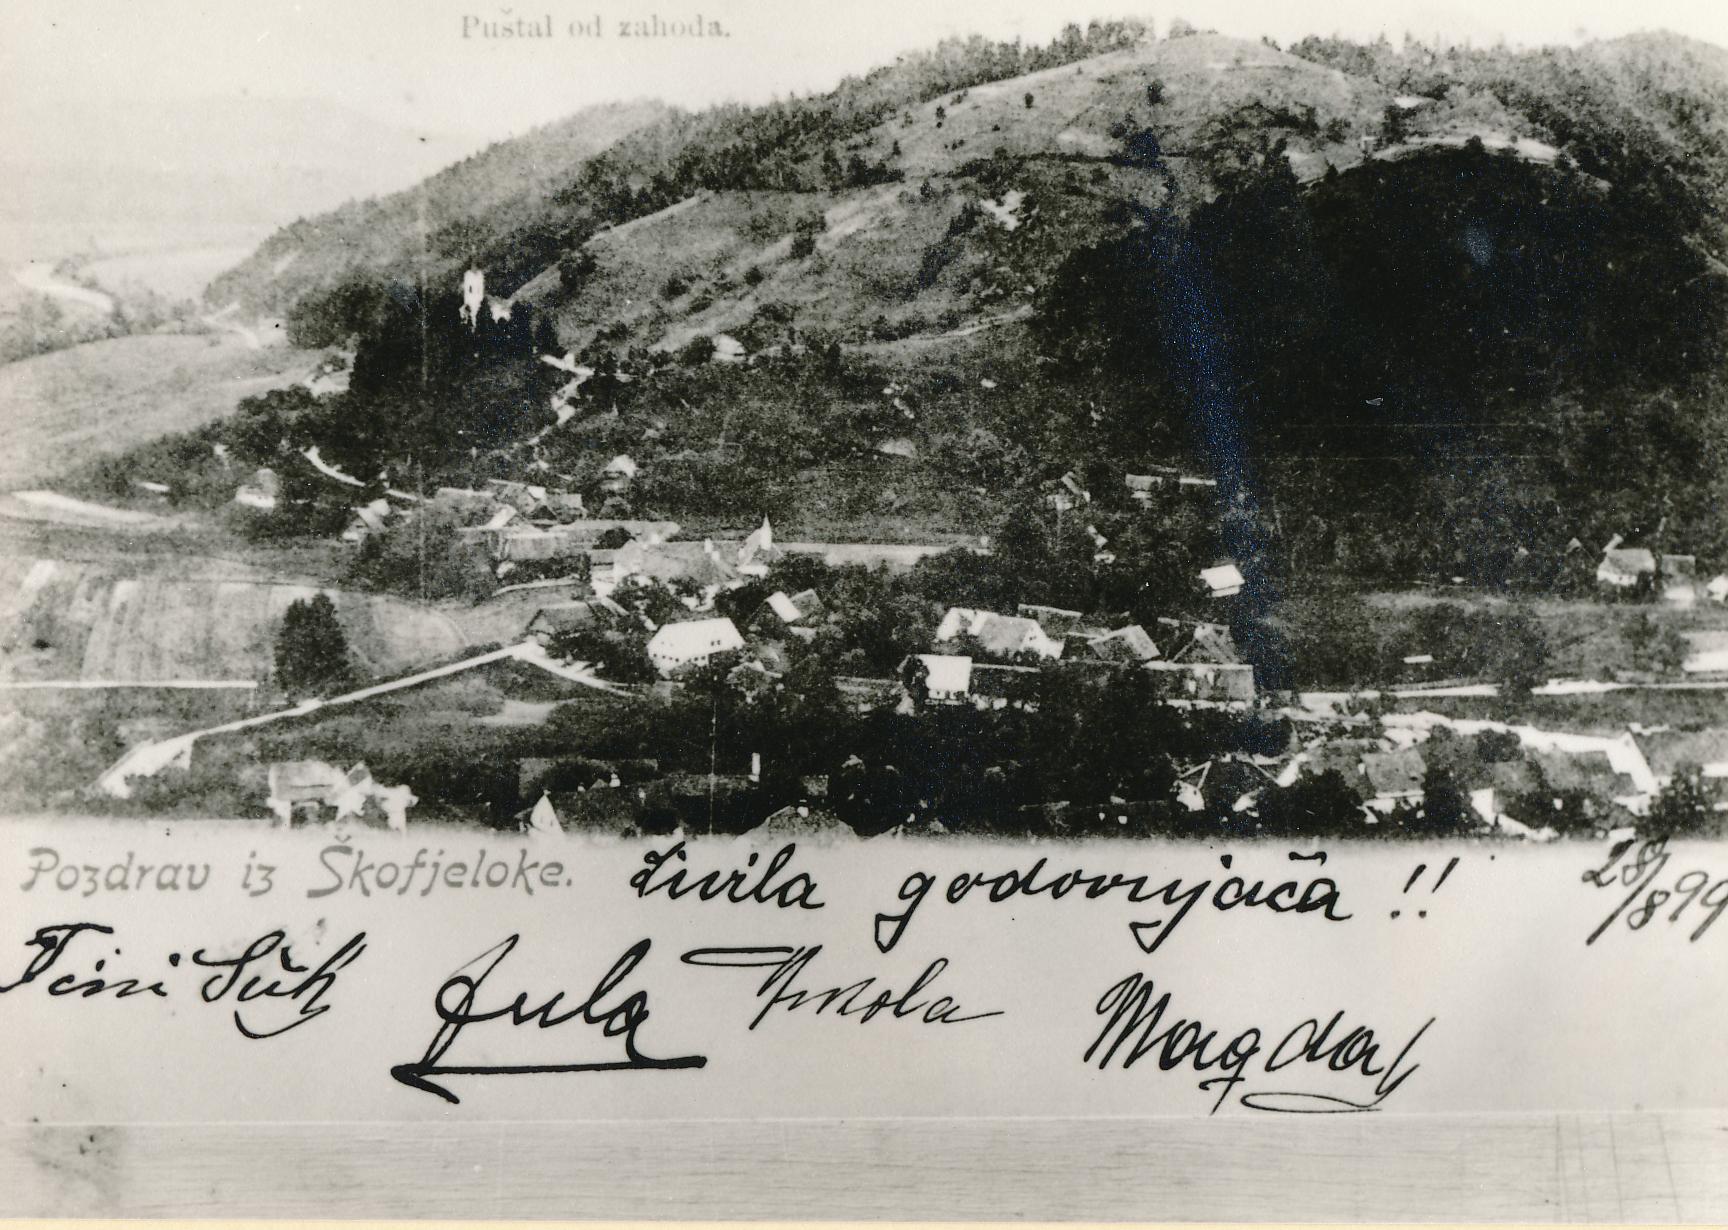 Puštal od zahoda.
Pozdrav iz Škofjeloke. Živila godovnjača !! 28/8 99
Tini Šuk Jula Magda